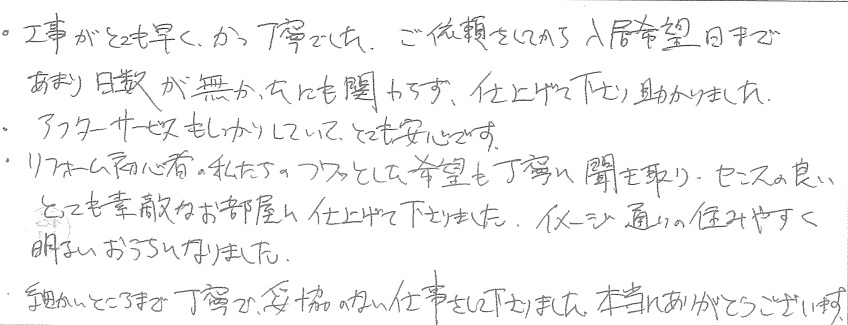 ・工事がとても早く、かつ丁寧でした。ご依頼をしてから入居希望日まで
あまり日数が無かったにも関わらず、仕上げて下さり助かりました。
・アフターサービスもしっかりしていて、とても安心です。
・リフォーム初心者の私たちのフワッとした希望も丁寧に聞き取り、センスの良い
とっても素敵なお部屋に仕上げて下さりました。イメージ通りの住みやすく
明るいおうちになりました。
・細かいところまで丁寧で、妥協のない仕事をして下さりました。本当にありがとうございます。